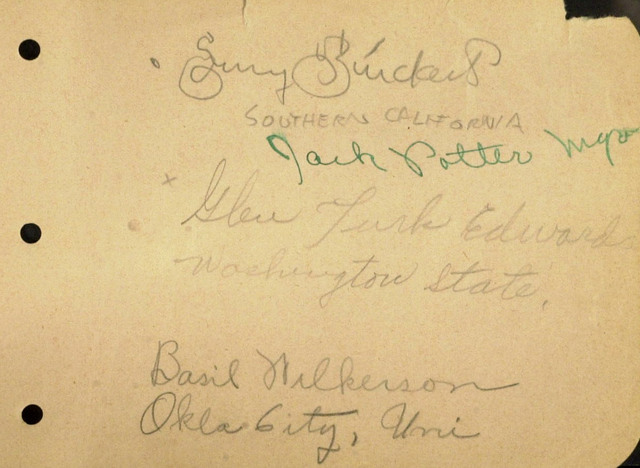 Erny Pinckert
SOUTHERN CALIFORNIA
Jack Potter Mgr
Glen Turk Edwards
Washington State.
Basil Wilkerson
Okla City, Uni